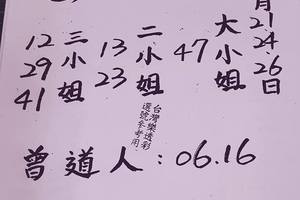 月21.24.26日
大小姐
47
二小姐
13
23
三小姐
12
29
41
台灣樂透彩
選號參考用
曾道人：06.16